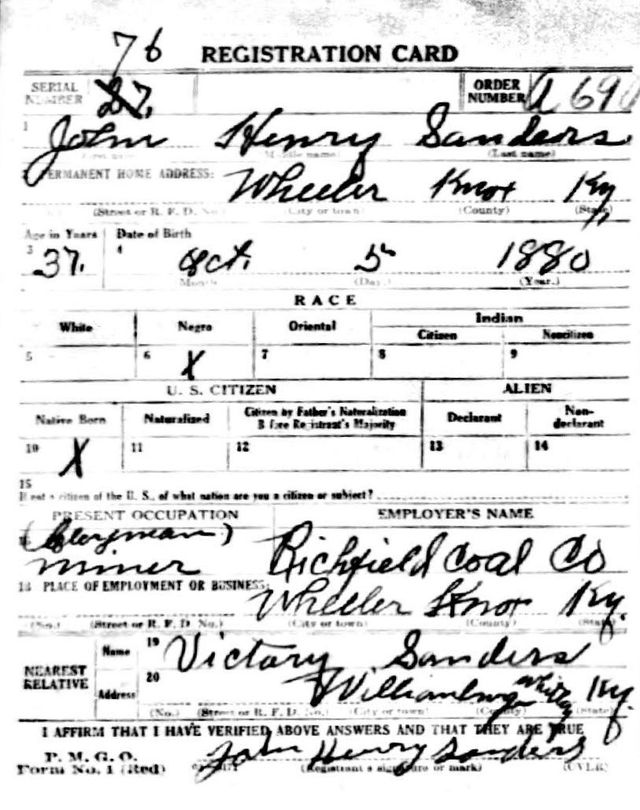 76 REGISTRATION CARD
SERIAL NUMBER 27. ORDER NUMBER A 690
1 John Henry Sanders
(First name) (Middle name) (Last name)
2 PERMANENT HOME ADDRESS: Wheeler Knox Ky.
(Street or R. F. D. No.) (City or town) (County) (State)
Age in Years Date of Birth
3 37. 4 Oct. 5 1880
(Month) (Day.) (Year.)
RACE
White Negro Oriental Indian
Citizen Noncitizen
5 6 X 7 8 9
U. S. CITIZEN ALIEN
Native Born Naturalized Citizen by Father's Naturalization Before Registrant's Majority Declarant Non-declarant
10 X 11 12 13 14
15
If not a citizen of the U. S., of what nation are you a citizen or subject?
PRESENT OCCUPATION EMPLOYER'S NAME
(Clergyman)
miner Richfield Coal Co
18 PLACE OF EMPLOYMENT OR BUSINESS: Wheeler Knox Ky.
(No.) (Street or R. F. D. No.) (City or town) (County) (State)
NEAREST RELATIVE Name 19 Victary Sanders
Address 20 Williamburg Whitley Ky.
(No.) (Street or R. F. D. No.) (City or town) (County) (State)
I AFFIRM THAT I HAVE VERIFIED ABOVE ANSWERS AND THAT THEY ARE TRUE
P. M. G. O.
Form No. 1 (Red) John Henry Sanders
(Registrant's signature or mark) (OVER)